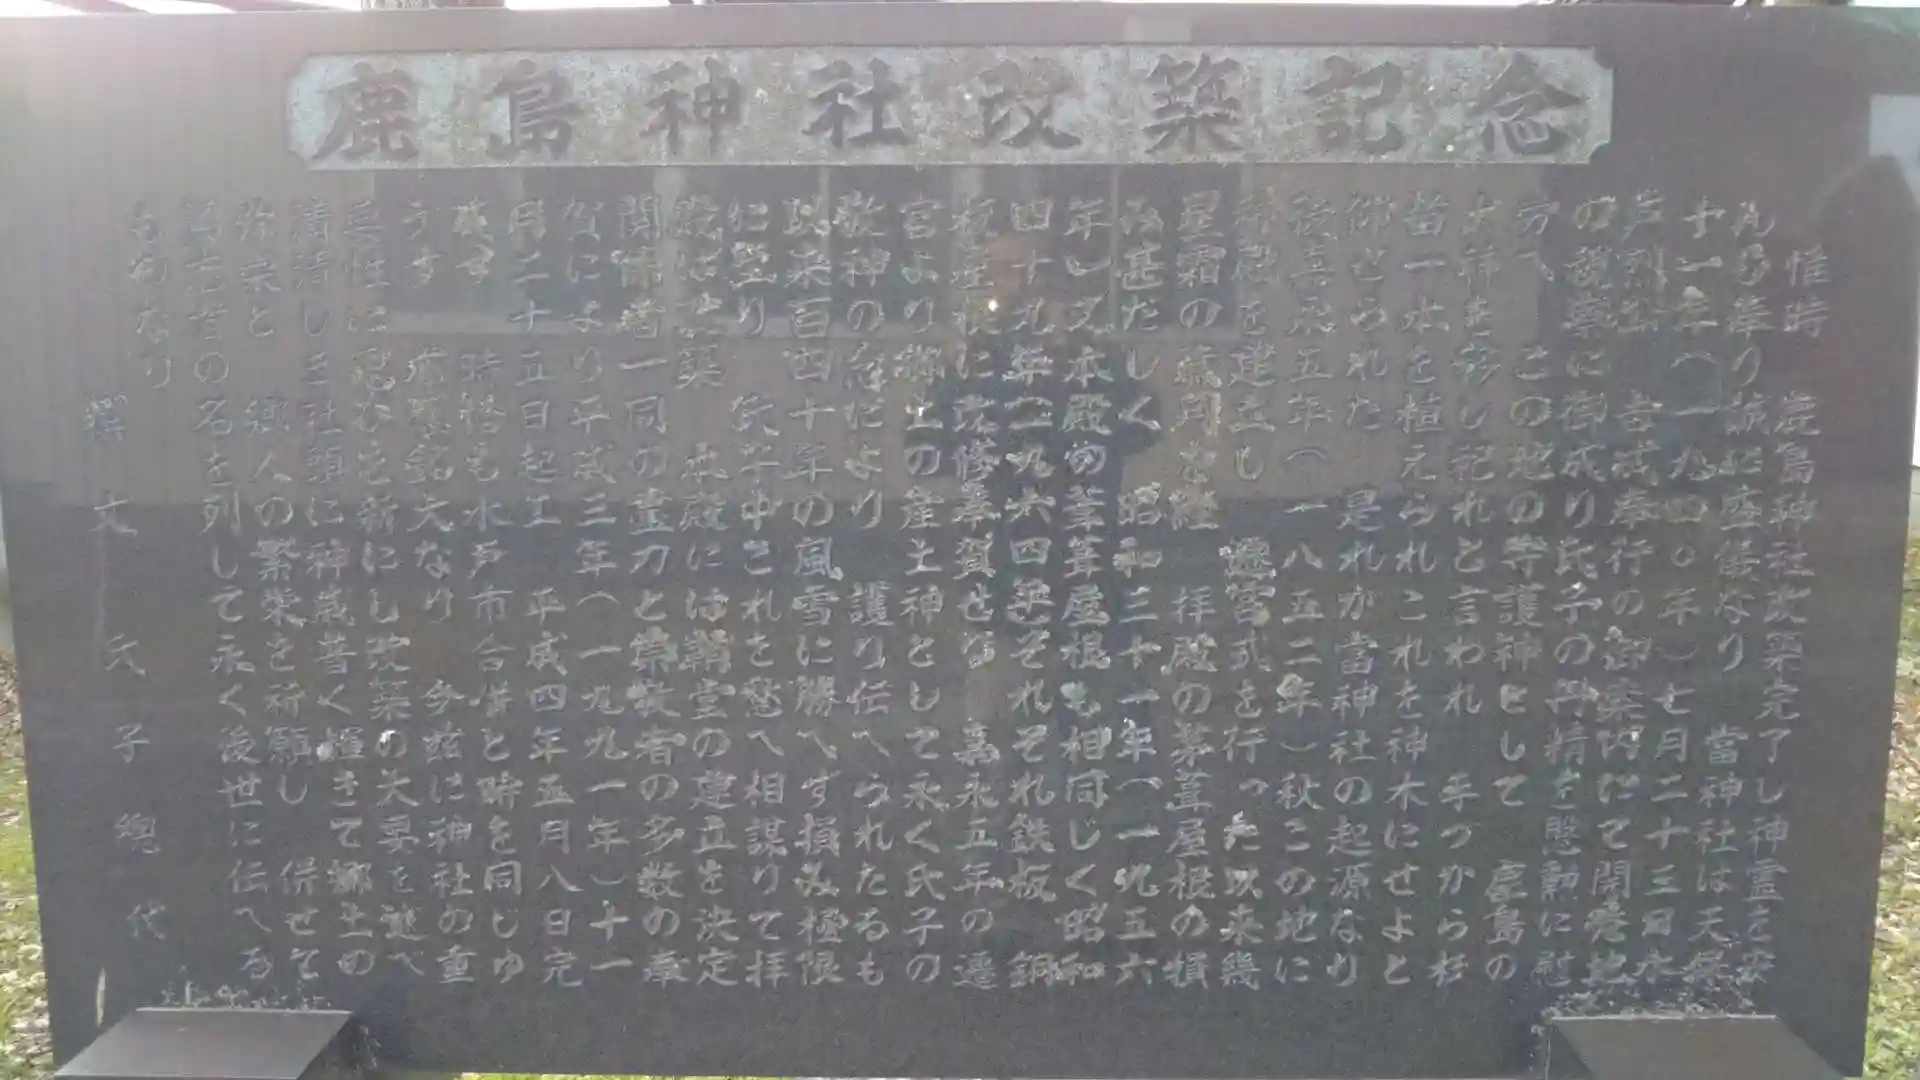 鹿島神社改築記念
惟時 鹿島神社改築完了し神霊を安
んじ奉り誠に盛儀なり 當神社は天保
十一年(一八四〇年)七月二十三日水
戸烈公 吉成奉行の御案内にて開墾地
の視察に御成り氏子の丹精を慇懃に慰
労へ この地の守護神として 鹿島の
大神を移し祀れと言われ 手つから杉
苗一本を植えられこれを神木にせよと
仰せられた 是れが當神社の起源なり
後嘉永五年(一八五二年)秋この地に
社殿を建立し 遷宮式を行った以来幾
星霜の歳月を経 拝殿の茅葺屋根の損
み甚だしく 昭和三十一年(一九五六
年)又本殿の茅葺屋根も相同じく昭和
四十九年 それぞれ鉄板 銅
板屋根に改修奉賀せり 嘉永五年の遷
宮より郷土の産土神として永く氏子の
敬神の念により 護り伝へられたるも
以来百四十年の風雪に勝へす損み極限
に至り 氏子中これを愁へ相謀りて拝
殿を改築 本殿には鞘堂の建立を決定
関係者一同の盡力と崇敬者の多数の奉
賀により平成三年(一九九一年)十一
月二十五日起工 平成四年五月八日完
成す 時恰も水戸市合併と時を同じゆ
うす 意義大なり 今茲に神社の重
要性に思ひを新にし改築の大要を述べ
清清しき社頭に神威普く輝きて郷土の
弥栄と 郷人の繁栄を祈願し 併せて
篤志者の名を列して永く後世に伝へる
ものなり
撰文 氏子總代